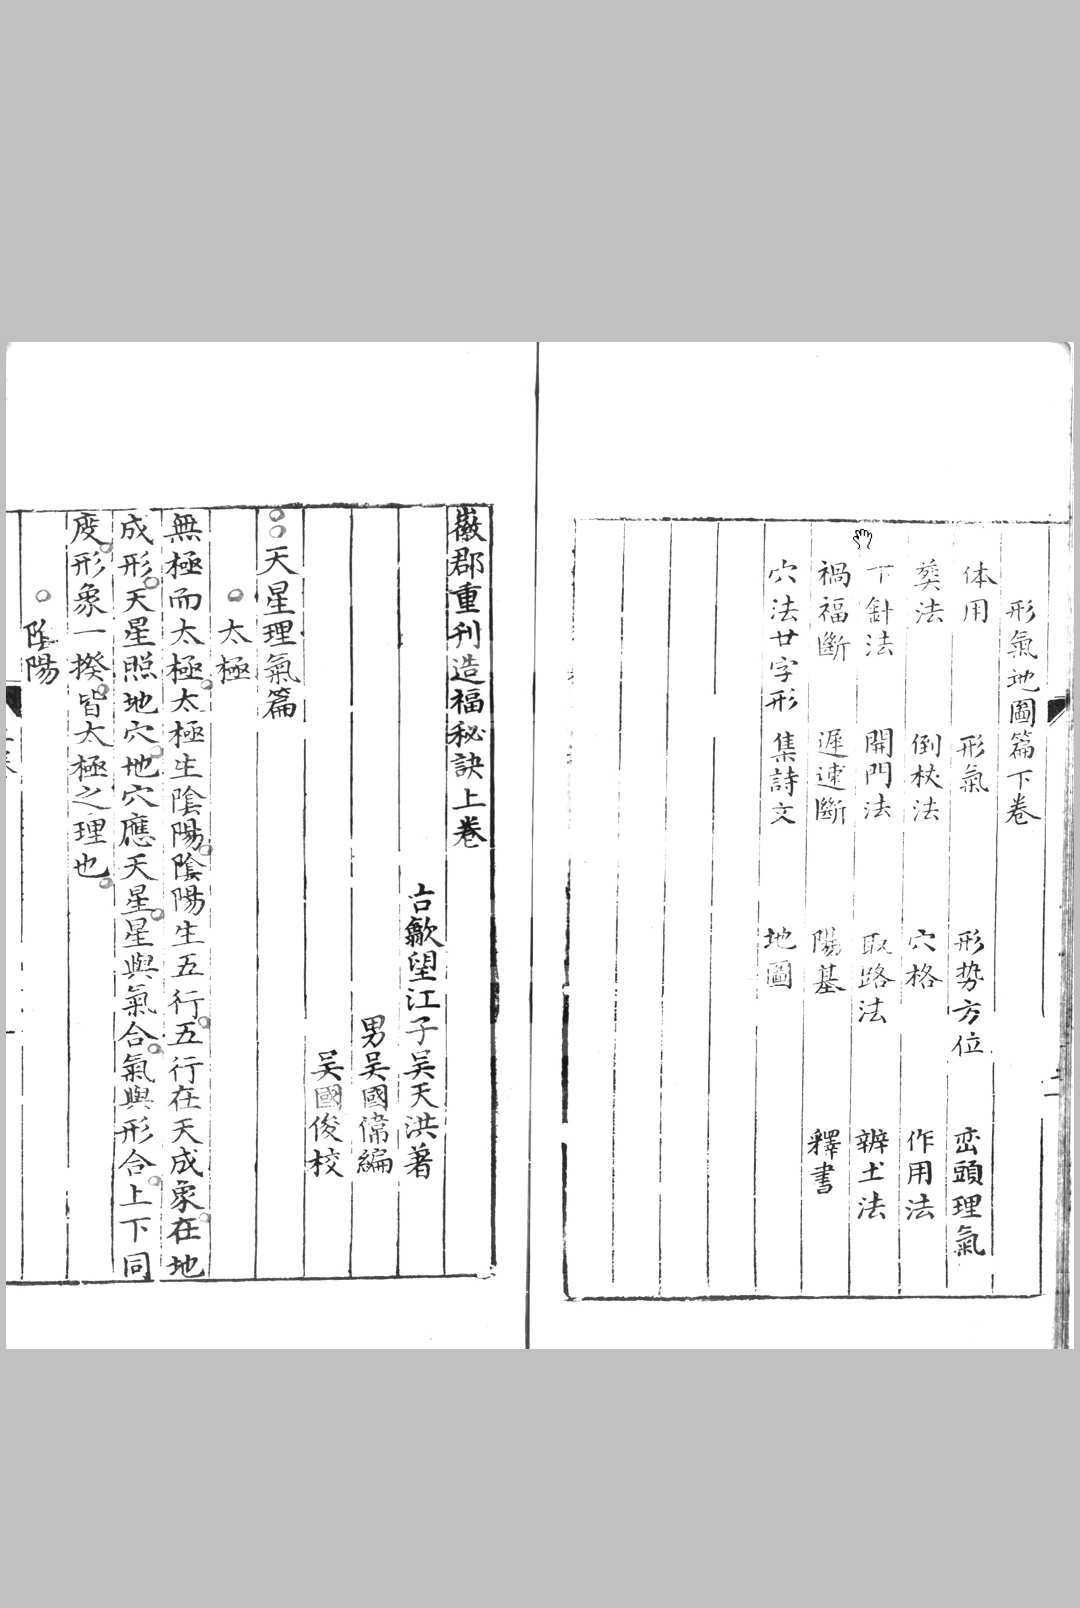 形氣地圖篇下卷
体用 形氣 形势方位 巒頭理氣
葬法 倒杖法 穴格 作用法
下針法 開門法 取路法 辨土法
禍福斷 遲速斷 陽基 釋書
穴法廿字形 集詩文 地圖
徽郡重刊造福秘訣上卷
古歙望江子吴天洪著
男吴國偉編
吴國俊校
天星理氣篇
太極
無極而太極太極生陰陽陰陽生五行五行在天成象在地
成形天星照地穴地穴應天星星與氣合氣與形合上下同
度形象一揆皆太極之理也
陰陽